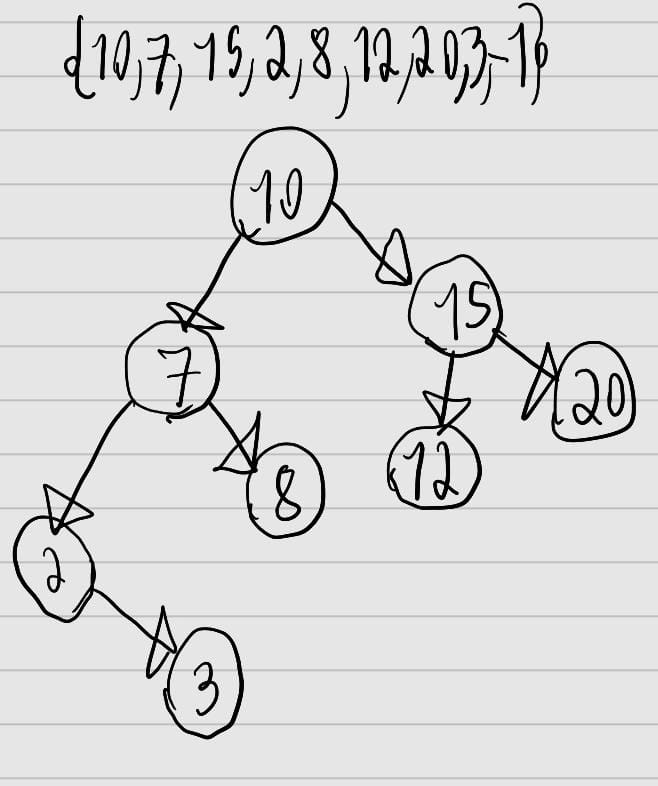 {10,7,15,2,8,12,20,3,-1}
10
15
7
20
12
8
2
3